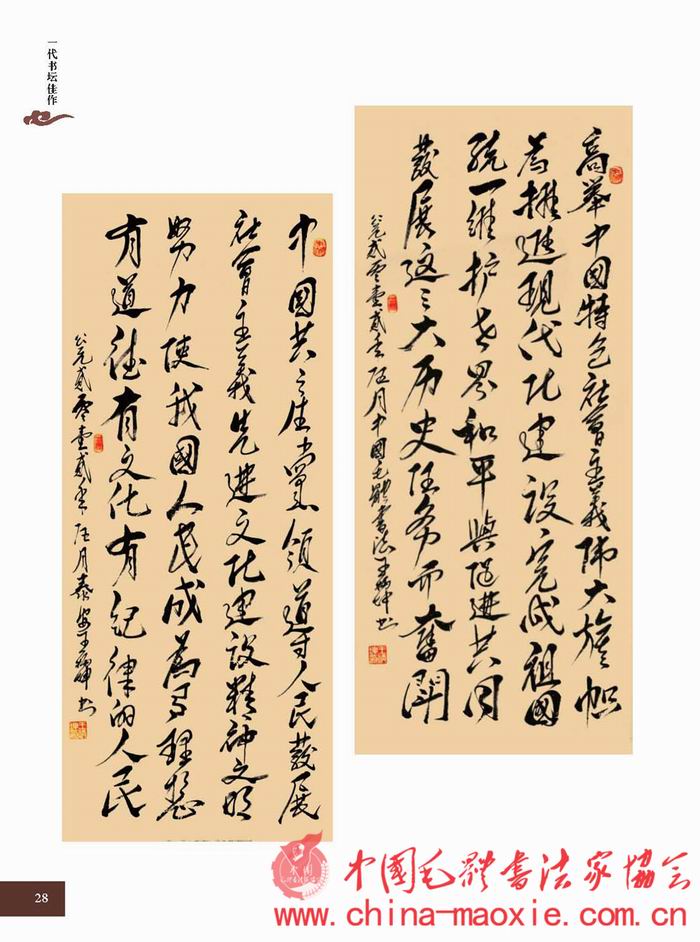 一代书坛佳作
高举中国特色社会主义伟大旗帜
为推进现代化建设完成祖国
统一维护世界和平与促进共同
發展这三大历史任务而奮鬭
公元贰零壹贰年 月中國毛體書法王
中國共产党领導人民發展
社會主義先進文化建設精神文明
努力使我國人民成為有理想
有道德有文化有紀律的人民
公元贰零壹贰年 月泰安王 书
28
中國毛體書法家協会
www.china-maoxie.com.cn